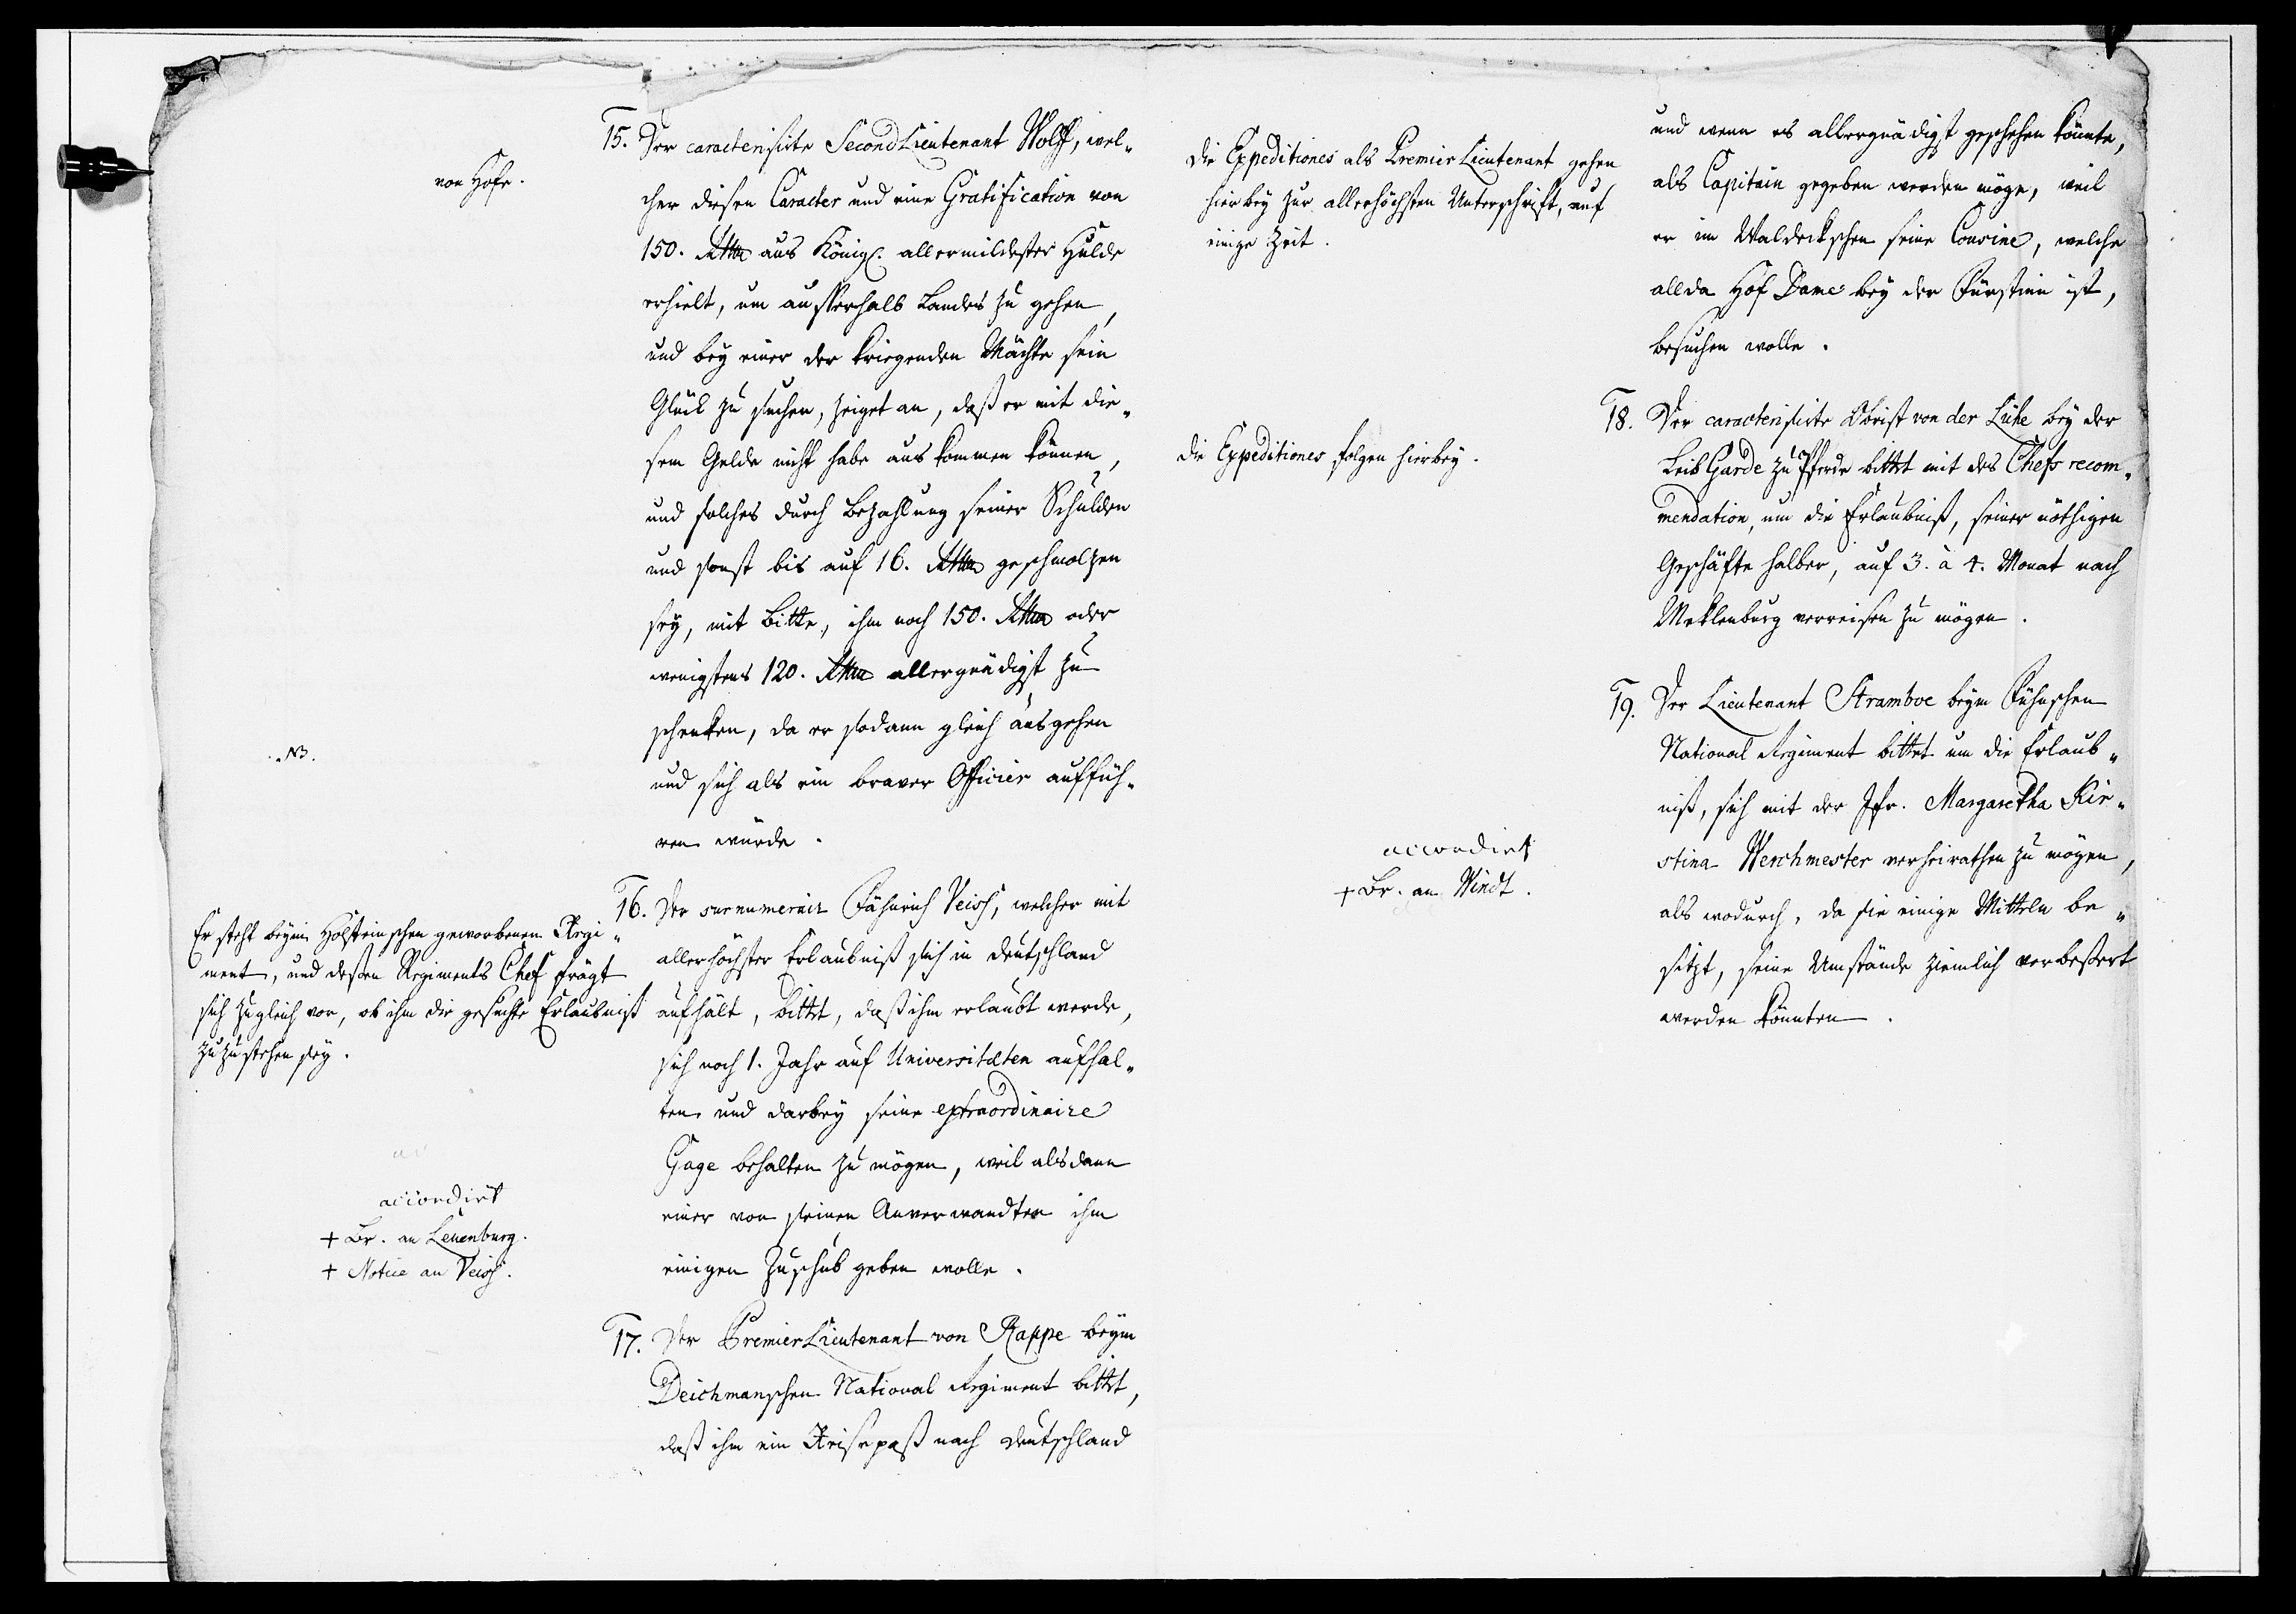 von Hofe.
NB.
Er steht beym Holsteinschen geworbenen Regi„
ment, und deßen Regiments Chef frägt
sich zugleich vor, ob ihm die gesuchte Erlaubniß
zuzustehen sey.
accordirt
+ Br. an Leuenburg.
+ Notice an Veiss.
15. Der caracterisirte Second Lieutenant Wolff, wel„
cher diesen Caracter und eine Gratification von
150. Rthlr aus Königl. allermildester Hulde
erhielt, um ausserhalb Landes zu gehen,
und bey einer der kriegenden Mächte sein
Glück zu suchen, zeiget an, daß er mit die„
sem Gelde nicht habe auskommen können,
und solches durch Bezahlung seiner Schulden
und sonst bis auf 16. Rthlr geschmolzen
sey, mit Bitte, ihm noch 150. Rthlr oder
wenigstens 120. Rthlr allergnädigst zu
schenken, da er sodann gleich ausgehen
und sich als ein braver Officier auffüh„
ren würde.
16. Der surnumerair Fähnrich Veiss, welcher mit
allerhöchster Erlaubniß sich in Deutschland
aufhält, bittet, daß ihm erlaubt werde,
sich noch 1. Jahr auf Universitæten aufhal„
ten und darbey seine extraordinaire
Gage behalten zu mögen, weil alsdann
einer von seinen Anverwandten ihm
einigen Zuschub geben wolle.
17. Der Premier Lieutenant von Rappe beym
Deichmanschen National Regiment bittet,
daß ihm ein Reisepaß nach Deutschland
Die Expeditiones als Premier Lieutenant gehen
hierbey zur allerhöchsten Unterschrift, auf
einige Zeit.
Die Expeditiones folgen hierbey.
accordirt
+ Br. an Windt.
und wenn es allergnädigst geschehen könnte,
als Capitain gegeben werden möge, weil
er im Waldeckschen seine Cousine, welche
allda Hof Dame bey der Fürstinn ist,
besuchen wolle.
18. Der caracterisirte Obrist von der Lühe bey der
Leib Garde zu Pferde bittet mit des Chefs recom„
mendation, um die Erlaubniß, seiner nöthigen
Geschäfte halber, auf 3. à 4. Monat nach
Meklenburg verreisen zu mögen.
19. Der Lieutenant Stramboe beym Fühnschen
National Regiment bittet um die Erlaub„
niß, sich mit der Jfr. Margaretha Kir„
stina Werchmester verheirathen zu mögen,
als wodurch, da sie einige Mitteln be„
sitzt, seine Umstände ziemlich verbeßert
werden könnten.